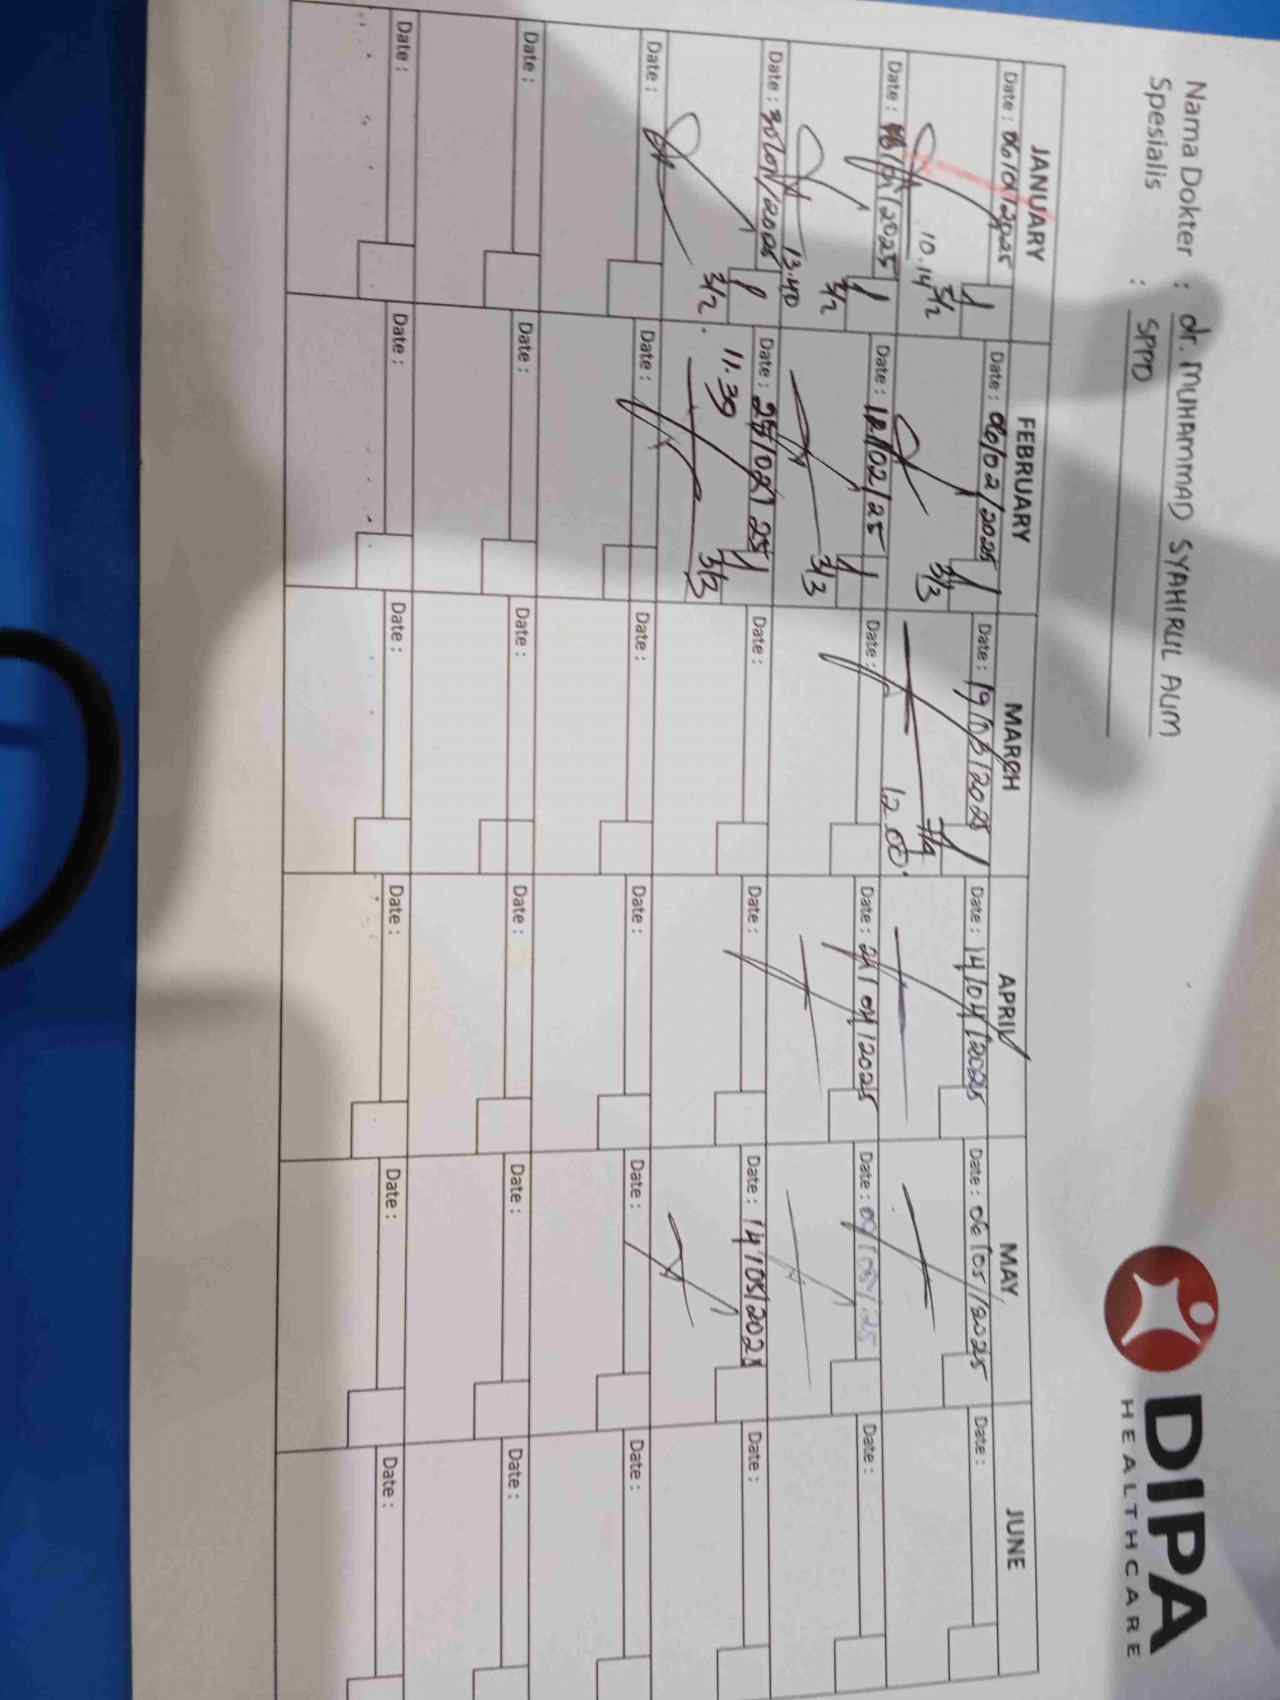 Nama Dokter : dr. MUHAMMAD SYAHIRUL ALIM
Spesialis : SPPD
DIPA
HEALTHCARE
JANUARY FEBRUARY MARCH APRIL MAY JUNE
Date : 06/01/2025 Date : 06/02/2025 Date : 19/03/2025 Date : 14/04/2025 Date : 06/05/2025 Date :
10.14 3/2 3/3 7/4
12.00
Date : /01/2025 Date : 12/02/25 Date : Date : 24/04/2025 Date : 09/05/25 Date :
13.40 3/2 3/3
Date : 30/01/2025 Date : 25/02/25 Date : Date : Date : 14/05/2025 Date :
3/2 11.39 3/3
Date : Date : Date : Date : Date : Date :
Date : Date : Date : Date : Date : Date :
Date : Date : Date : Date : Date : Date :